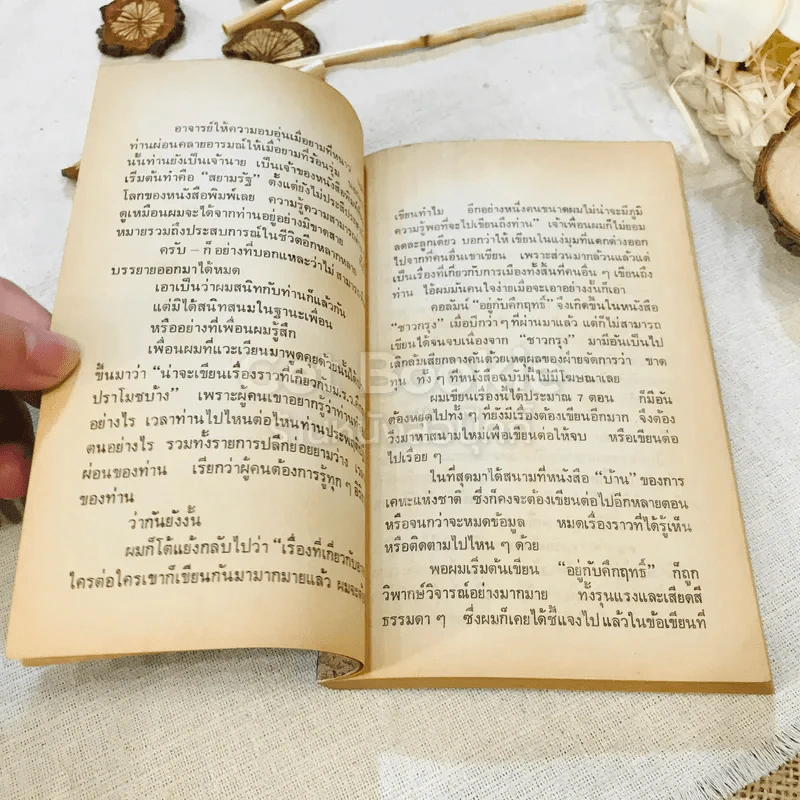 อาจารย์ให้ความอบอุ่นเมื่อยามที่หนาว
ท่านผ่อนคลายอารมณ์ให้เมื่อยามที่ร้อนรุ่ม
นั้นท่านยังเป็นเจ้านาย เป็นเจ้าของหนังสือพิมพ์
เริ่มต้นทำคือ “สยามรัฐ” ตั้งแต่ยังไม่ประสี
โลกของหนังสือพิมพ์เลย ความรู้ความสามารถ
ดูเหมือนผมจะได้จากท่านอยู่อย่างมิขาดสาย
หมายรวมถึงประสบการณ์ในชีวิตอีกหลากหลาย
ครับ – ก็ อย่างที่บอกแหละว่าไม่ สามารถ
บรรยายออกมาได้หมด
เอาเป็นว่าผมสนิทกับท่านก็แล้วกัน
แต่มิได้สนิทสนมในฐานะเพื่อน
หรืออย่างที่เพื่อนผมรู้สึก
เพื่อนผมที่แวะเวียนมาพูดคุยด้วยนั้นได้
ขึ้นมาว่า “น่าจะเขียนเรื่องราวที่เกี่ยวกับม.ร.ว.
ปราโมชบ้าง” เพราะผู้คนเขาอยากรู้ว่าท่าน
อย่างไร เวลาท่านไปไหนต่อไหนท่านประพฤติ
ตนอย่างไร รวมทั้งรายการปลีกย่อยยามว่าง
ผ่อนของท่าน เรียกว่าผู้คนต้องการรู้ทุก ๆ
ของท่าน
ว่ากันยังงั้น
ผมก็โต้แย้งกลับไปว่า “เรื่องที่เกี่ยวกับ
ใครต่อใครเขาก็เขียนกันมามากมายแล้ว ผมจะ
เขียนทำไม อีกอย่างหนึ่งคนขนาดผมไม่น่าจะมีภูมิ
ความรู้พอที่จะไปเขียนถึงท่าน” เจ้าเพื่อนผมก็ไม่ยอม
ลดละลูกเดียว บอกว่าให้ เขียนในแง่มุมที่แตกต่างออก
ไปจากที่คนอื่นเขาเขียน เพราะส่วนมากล้วนแล้วแต่
เป็นเรื่องที่เกี่ยวกับการเมืองทั้งสิ้นที่คนอื่น ๆ เขียนถึง
ท่าน ไอ้ผมมันคนใจง่ายเมื่อจะเอาอย่างงั้นก็เอา
คอลัมน์ “อยู่กับคึกฤทธิ์” จึงเกิดขึ้นในหนังสือ
“ชาวกรุง” เมื่อปีกว่า ๆ ที่ผ่านมาแล้ว แต่ก็ไม่สามารถ
เขียนได้จนจบเนื่องจาก “ชาวกรุง” มามีอันเป็นไป
เลิกล้มเสียกลางคันด้วยเหตุผลของฝ่ายจัดการว่า ขาด
ทุน ทั้ง ๆ ที่หนังสือฉบับนี้ไม่มีโฆษณาเลย
ผมเขียนเรื่องนี้ได้ประมาณ 7 ตอน ก็มีอัน
ต้องหยุดไปทั้ง ๆ ที่ยังมีเรื่องต้องเขียนอีกมาก จึงต้อง
วิ่งมาหาสนามใหม่เพื่อเขียนต่อให้จบ หรือเขียนต่อ
ไปเรื่อย ๆ
ในที่สุดมาได้สนามที่หนังสือ “บ้าน” ของการ
เคหะแห่งชาติ ซึ่งก็คงจะต้องเขียนต่อไปอีกหลายตอน
หรือจนกว่าจะหมดข้อมูล หมดเรื่องราวที่ได้รู้เห็น
หรือติดตามไปไหน ๆ ด้วย
พอผมเริ่มต้นเขียน “อยู่กับคึกฤทธิ์” ก็ถูก
วิพากษ์วิจารณ์อย่างมากมาย ทั้งรุนแรงและเสียดสี
ธรรมดา ๆ ซึ่งผมก็เคยได้ชี้แจงไป แล้วในข้อเขียนที่